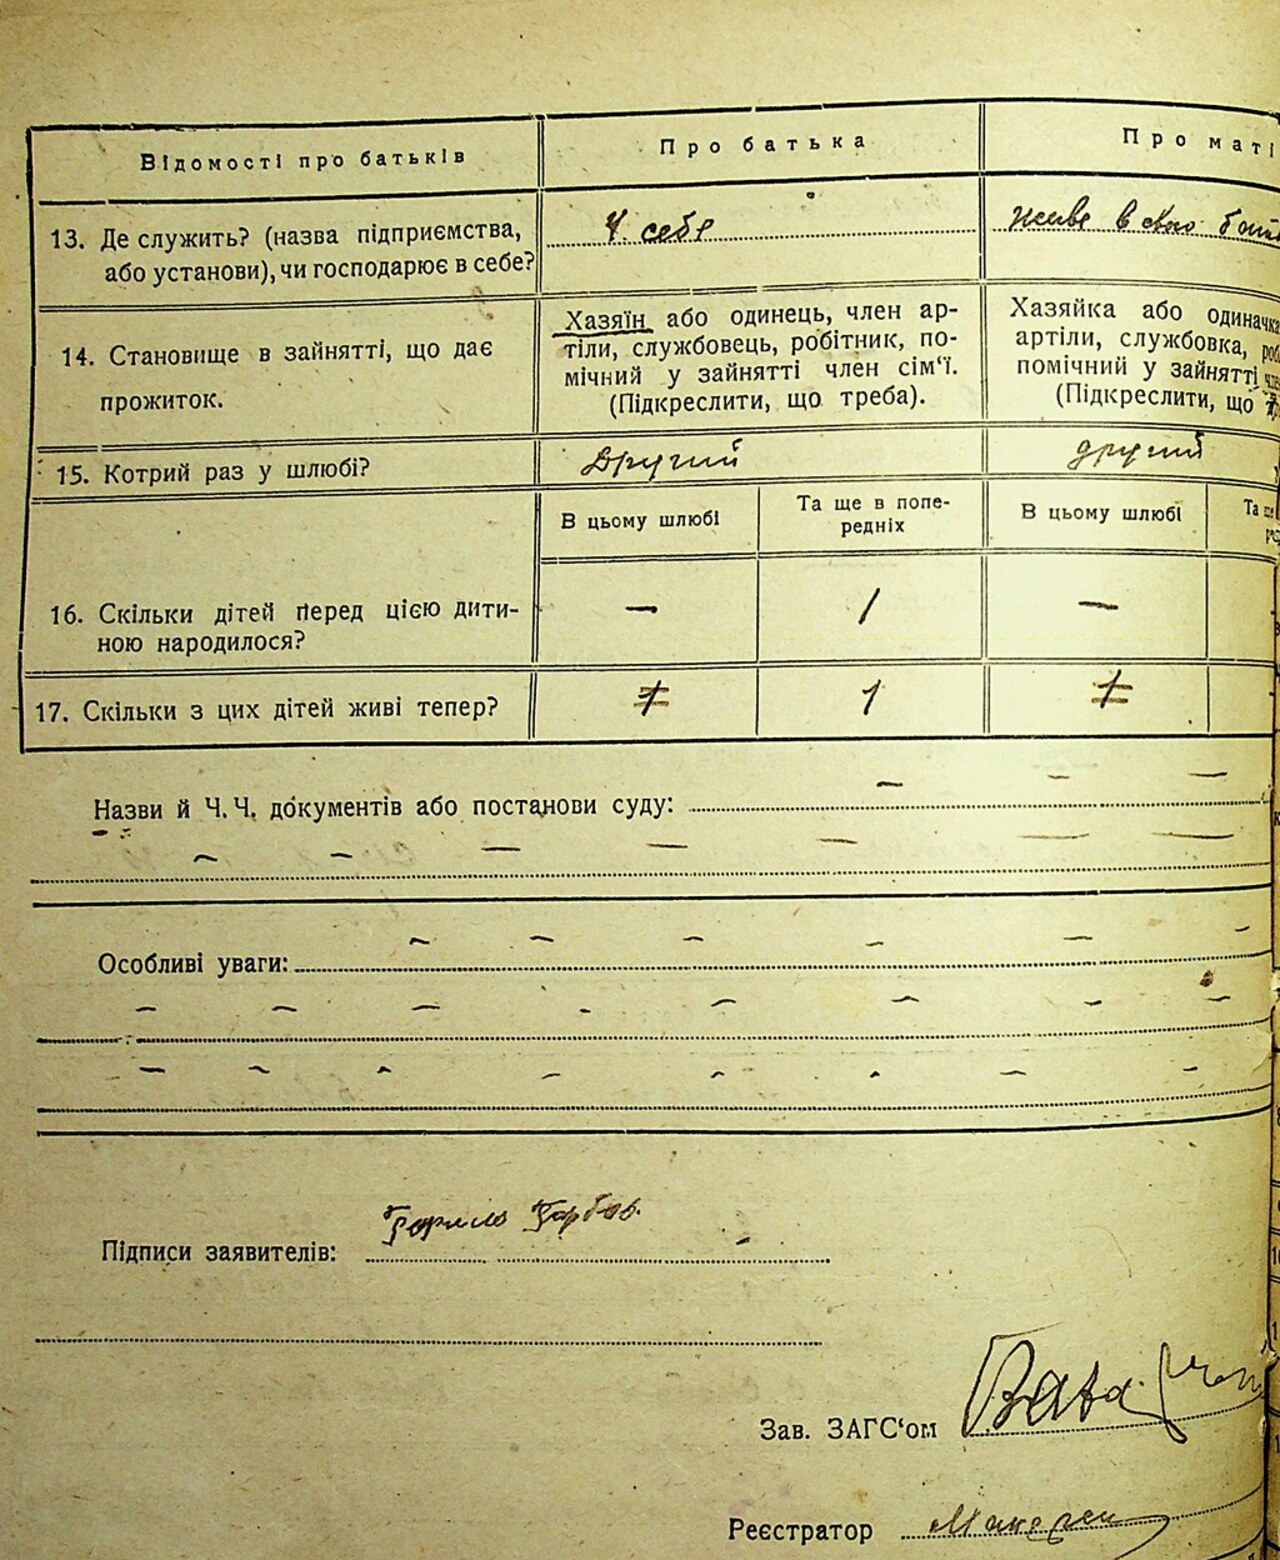 Відомості про батьків
Про батька
Про маті
13. Де служить? (назва підприємства,
або установи), чи господарює в себе?
У себе
живе в свого бать
14. Становище в зайнятті, що дає
прожиток.
Хазяїн або одинець, член ар-
тіли, службовець, робітник, по-
мічний у зайнятті член сім‘ї.
(Підкреслити, що треба).
Хазяйка або одиначка
артіли, службовка, роб
помічний у зайнятті чле
(Підкреслити, що т
15. Котрий раз у шлюбі?
Другий
другий
В цьому шлюбі
Та ще в попе-
редніх
В цьому шлюбі
Та ще
ре
16. Скільки дітей перед цією дити-
ною народилося?
—
1
—
17. Скільки з цих дітей живі тепер?
1
Назви й Ч.Ч. документів або постанови суду:
Особливі уваги:
Підписи заявителів:
Зав. ЗАГС‘ом
Реєстратор